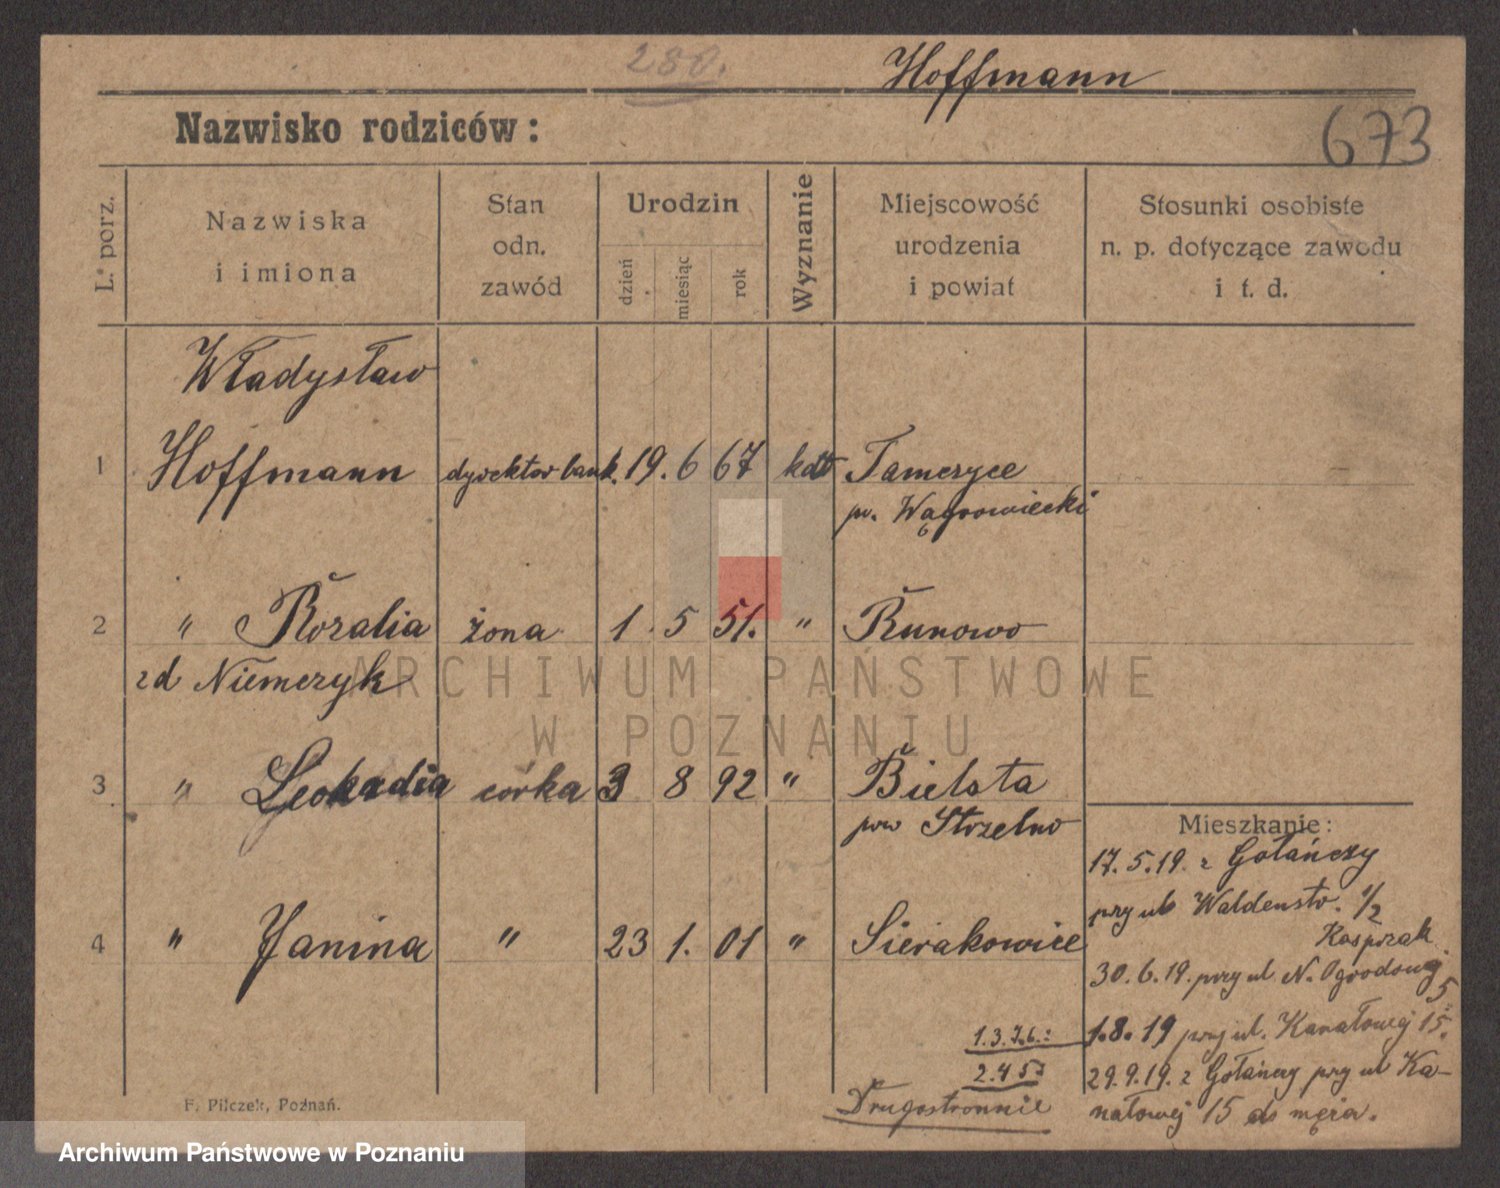 280.
Hoffmann
Nazwisko rodziców:
673
L. porz.
Nazwiska
i imiona
Stan
odn.
zawód
Urodzin
dzień
miesiąc
rok
Wyznanie
Miejscowość
urodzenia
i powiat
Stosunki osobiste
n. p. dotyczące zawodu
i t. d.
Władysław
1 Hoffmann dyrektor bank. 19. 6 67 kat
pw. Wągrowiecki
2 " Rozalia żona 1. 5 51. " Runowo
zd Niemczyk
3 " Leokadia córka 3 8 92 " Bielsta
pow Strzelno
4 " Janina " 23 1. 01 " Sierakowice
Mieszkanie:
17.5.19. z Gołańczy
przy ul Waldenstr. 1/2
Kasprzak
30.6.19. przy ul. N. Ogrodowej 5
1.8.19 przy ul. Kanałowej 15.
29.9.19. z Gołańczy przy ul Ka-
nałowej 15 do męża.
1.3.7.6.:
2.4.5
Drugostronnie
F. Pilczek, Poznań.
ARCHIWUM PAŃSTWOWE
W POZNANIU
Archiwum Państwowe w Poznaniu